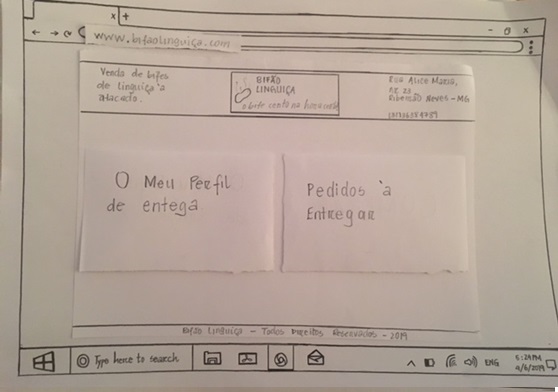 www.bifaolinguiça.com
Venda de bifes
de linguiça à
atacado.
BIFÃO
LINGUIÇA
o bife certo na hora certa
Rua Alice Maria,
nº 23
Ribeirão Neves - MG
O Meu Perfil
de entega
Pedidos à
Entregar
Bifão Linguiça - Todos Direitos Reservados - 2019
Type here to search
ENG
5:29PM
4/6/2019